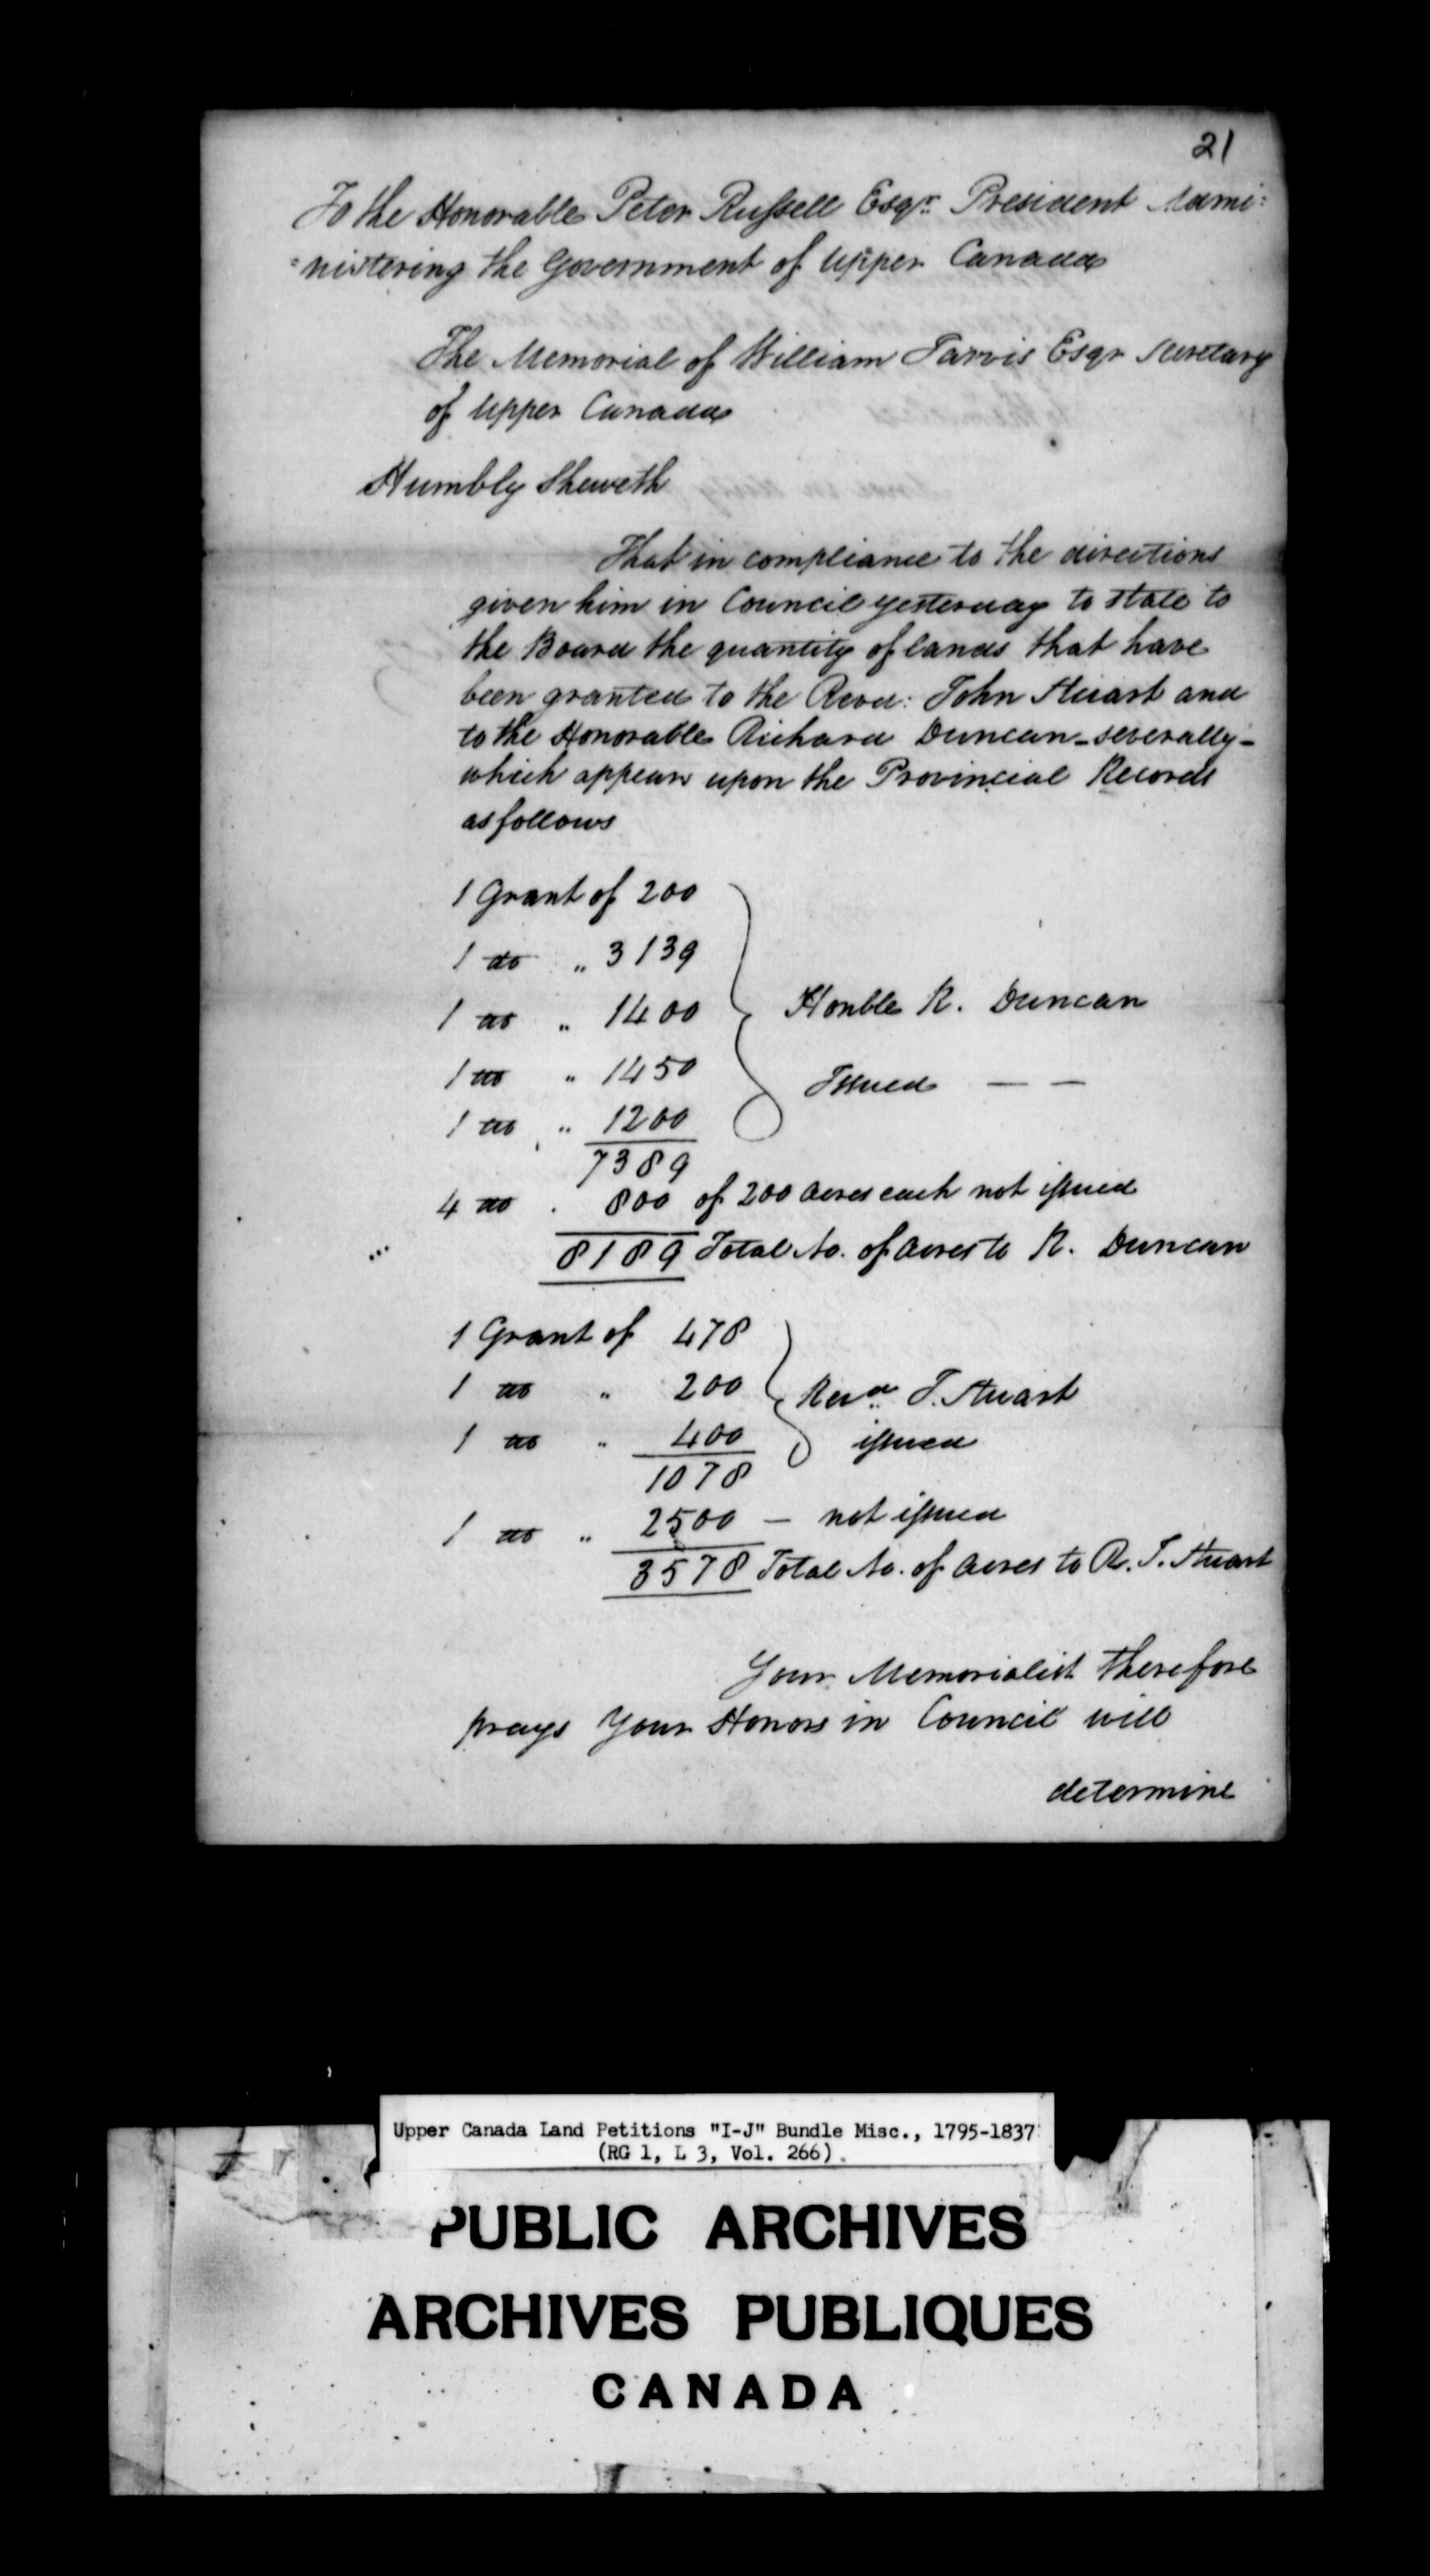 21
To the Honorable Peter Russell Esqr. President Admi=
=nistering the Government of Upper Canada
The Memorial of William Jarvis Esqr Secretary
of Upper Canada
Humbly Sheweth
That in compliance to the directions
given him in Council yesterday to state to
the Board the quantity of lands that have
been granted to the Revd: John Stuart and
to the Honorable Richard Duncan - severally -
which appears upon the Provincial Records
as follows
1 Grant of 200
1 do " 3139
1 do " 1400 Honble R. Duncan
1 do " 1450 Issued — —
1 do " 1200
7389
4 do . 800 of 200 acres each not issued
8189 Total No. of Acres to R. Duncan
1 Grant of 478
1 do " 200 Revd. J. Stuart
1 do " 400 issued
1078
1 do " 2500 — not issued
3578 Total No. of Acres to R. J. Stuart
Your Memorialist therefore
prays Your Honors in Council will
determine
Upper Canada Land Petitions "I-J" Bundle Misc., 1795-1837
(RG 1, L 3, Vol. 266)
PUBLIC ARCHIVES
ARCHIVES PUBLIQUES
CANADA